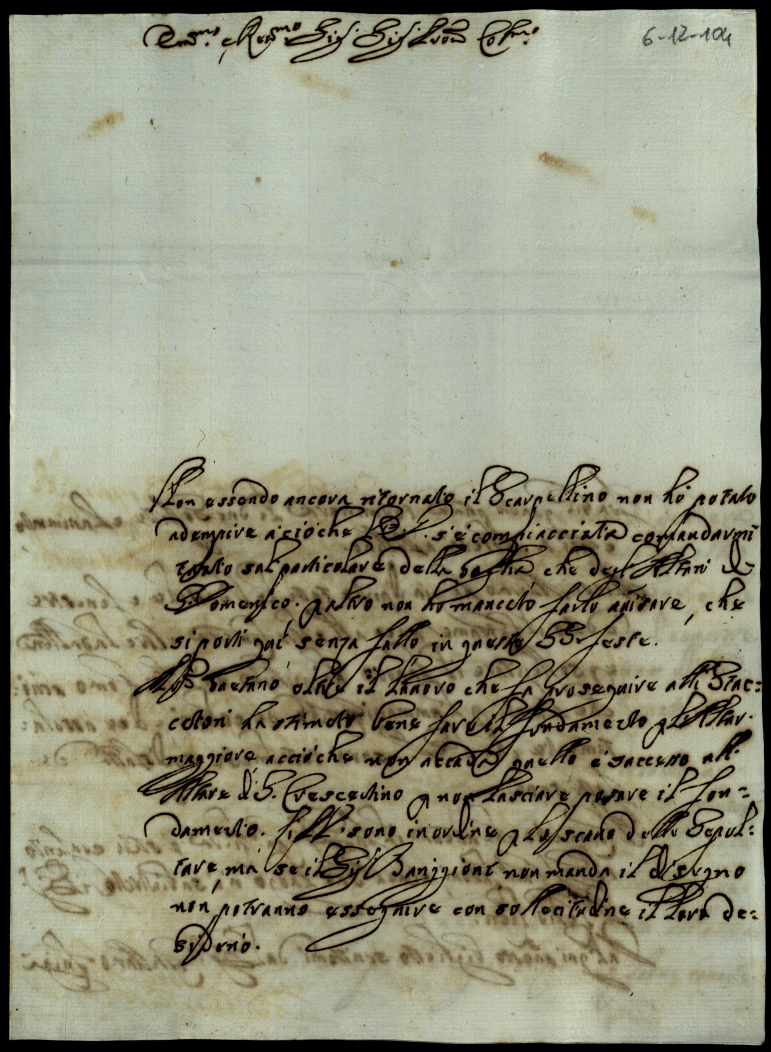 Em.mo e Re.mo Sig. Sig. Pron Col.mo
6-12-104
Non essendo ancora ritornato il Scarpellino non hò potuto
adempire a ciò che s'è compiacciuta comandarmi
tanto sul particolare della che degl'Altari di
S. Domenico, altro non ho mancato farlo avisare, che
si porti quì senza fallo in queste feste.
Gaetano oltre il lavoro che fa proseguire alli Stuc=
catori ha stimato bene fare il fondamento p l'Altar
maggiore acciò che non accada quello è sucesso all'
Altare di S. Crescentino p non lasciare posare il fon=
damento. sono in ordine p lo scavo delle Sepol=
ture, mà se il Sig. non manda il disegno
non potranno esseguire con sollecitudine il loro de=
siderio.